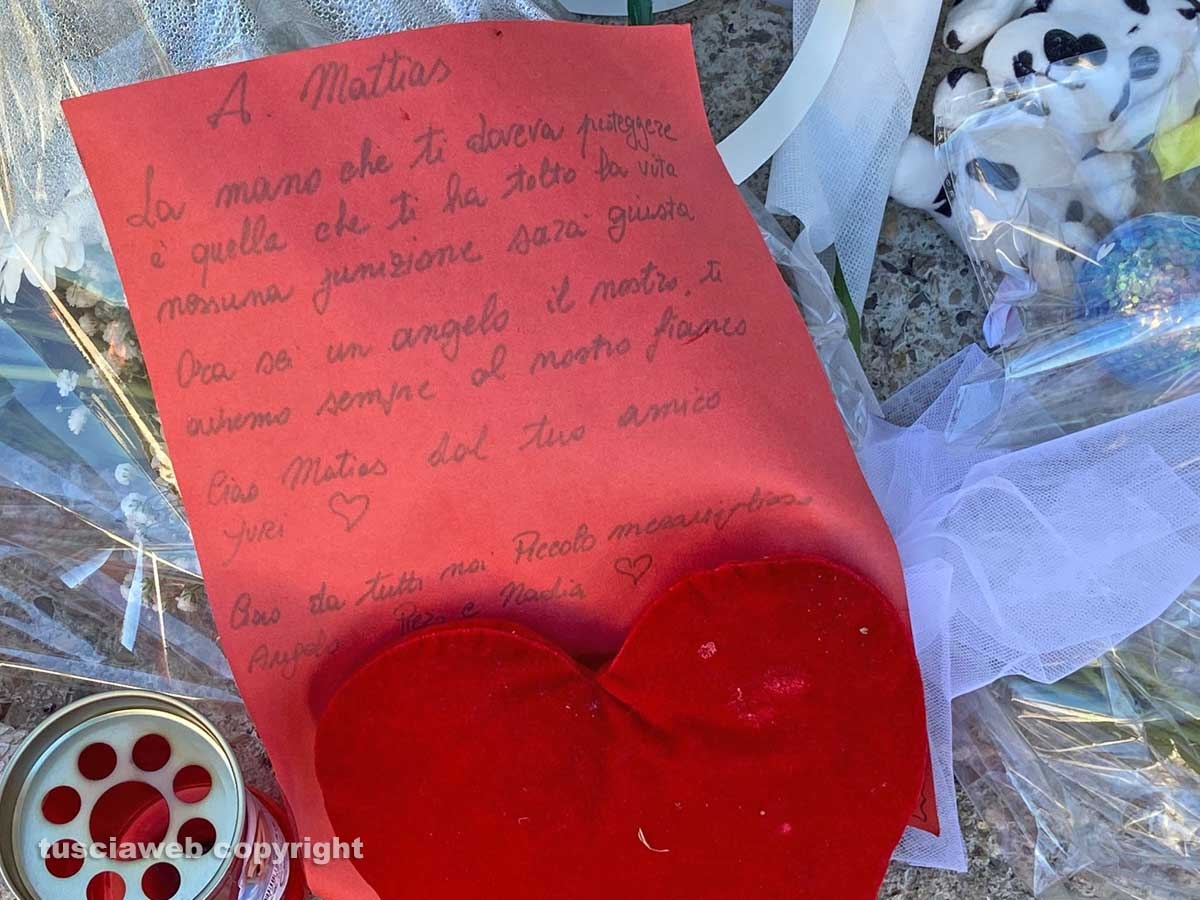 A Mattias
La mano che ti doveva proteggere
è quella che ti ha tolto la vita
nossuna punizione sarà giusta
Ora sei un angelo il nostro, ti
avremo sempre al nostro fianco
Ciao Matias dal tuo amico
YURI
Ciao da tutti noi Piccolo meraviglioso
Angelo e Nadia
tusciaweb copyright